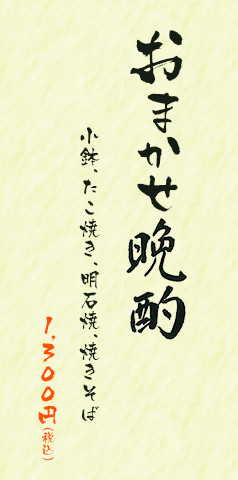 おまかせ晩酌
小鉢、たこ焼き、明石焼、焼きそば
1,300円(税込)